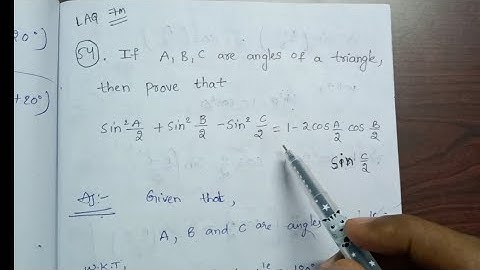 LAQ 7m
54. If A, B, C are angles of a triangle,
then prove that
sin² A/2 + sin² B/2 - sin² C/2 = 1 - 2cos A/2 cos B/2
sin C/2
Given that,
A, B and C are angles
W.K.T,